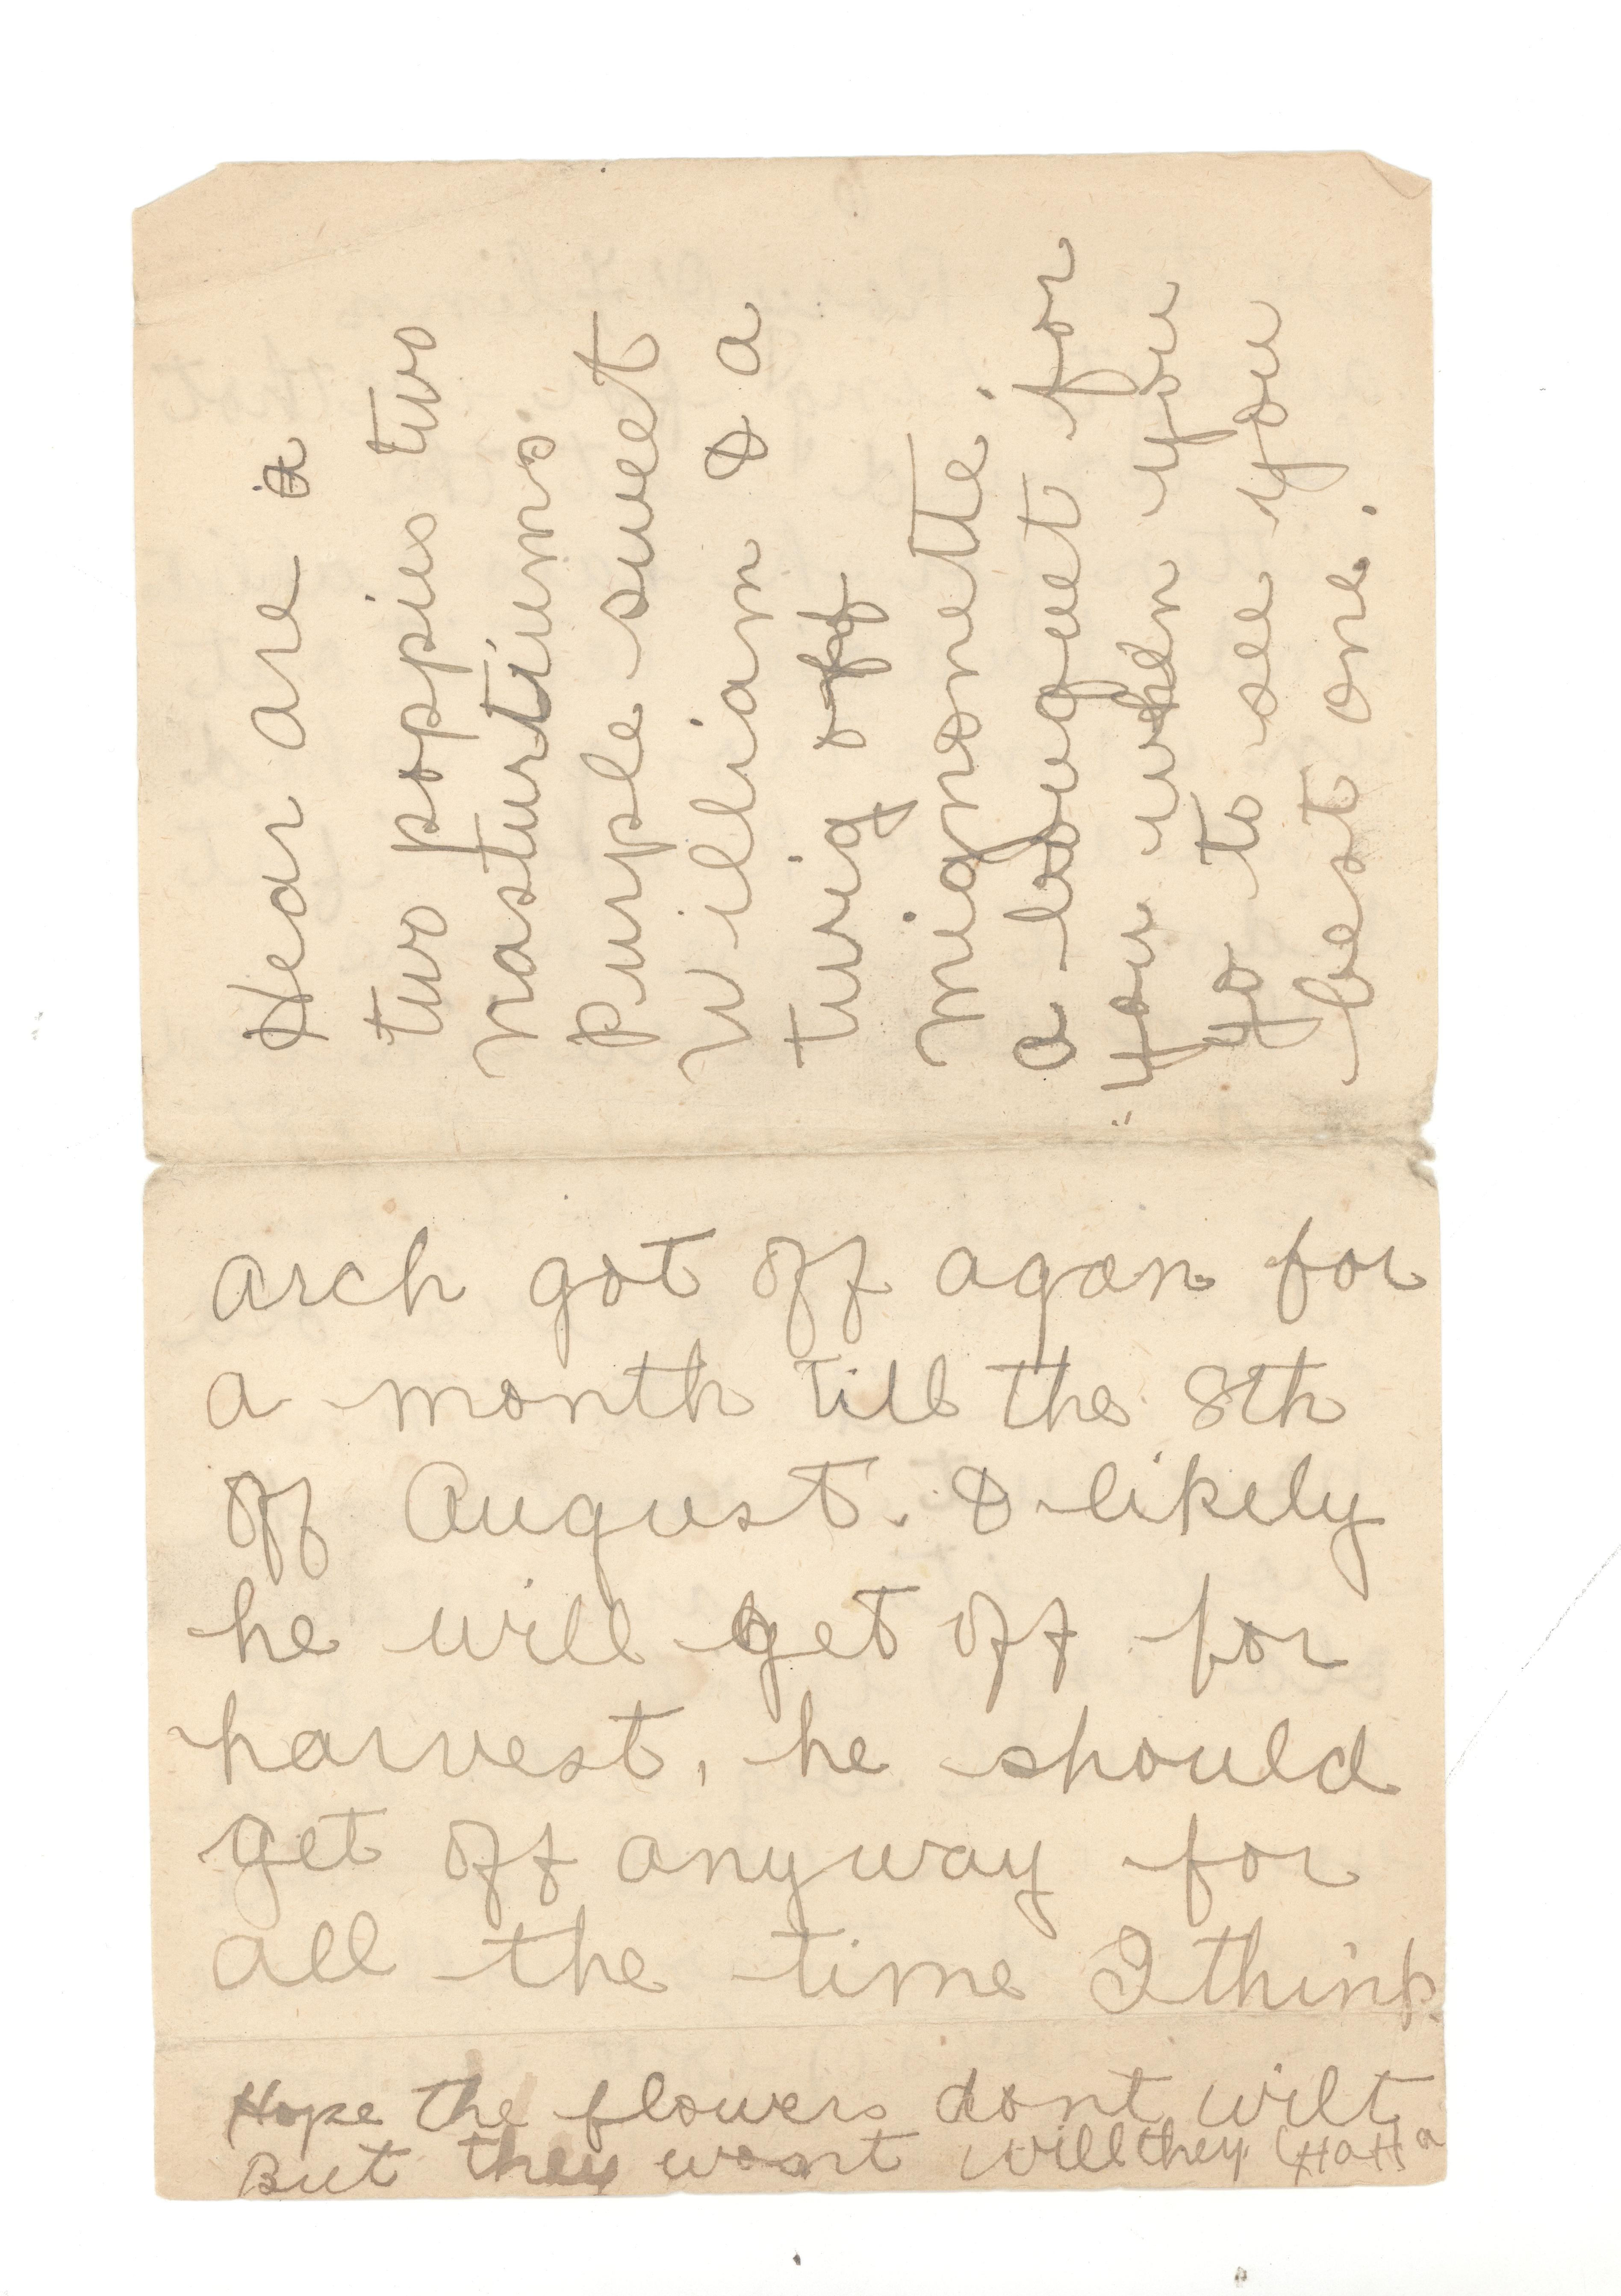 Hear are a
two poppies two
nasturtiums.
purple sweet
william & a
twig off
mignonette.
a bouquet for
you when you
go to see you
best one.
arch got off agan for
a month till the 8th
off August. & likely
he will get off for
harvest, he should
get off anyway for
all the time I think.
Hope the flowers dont wilt
But they wont will they (HaHa